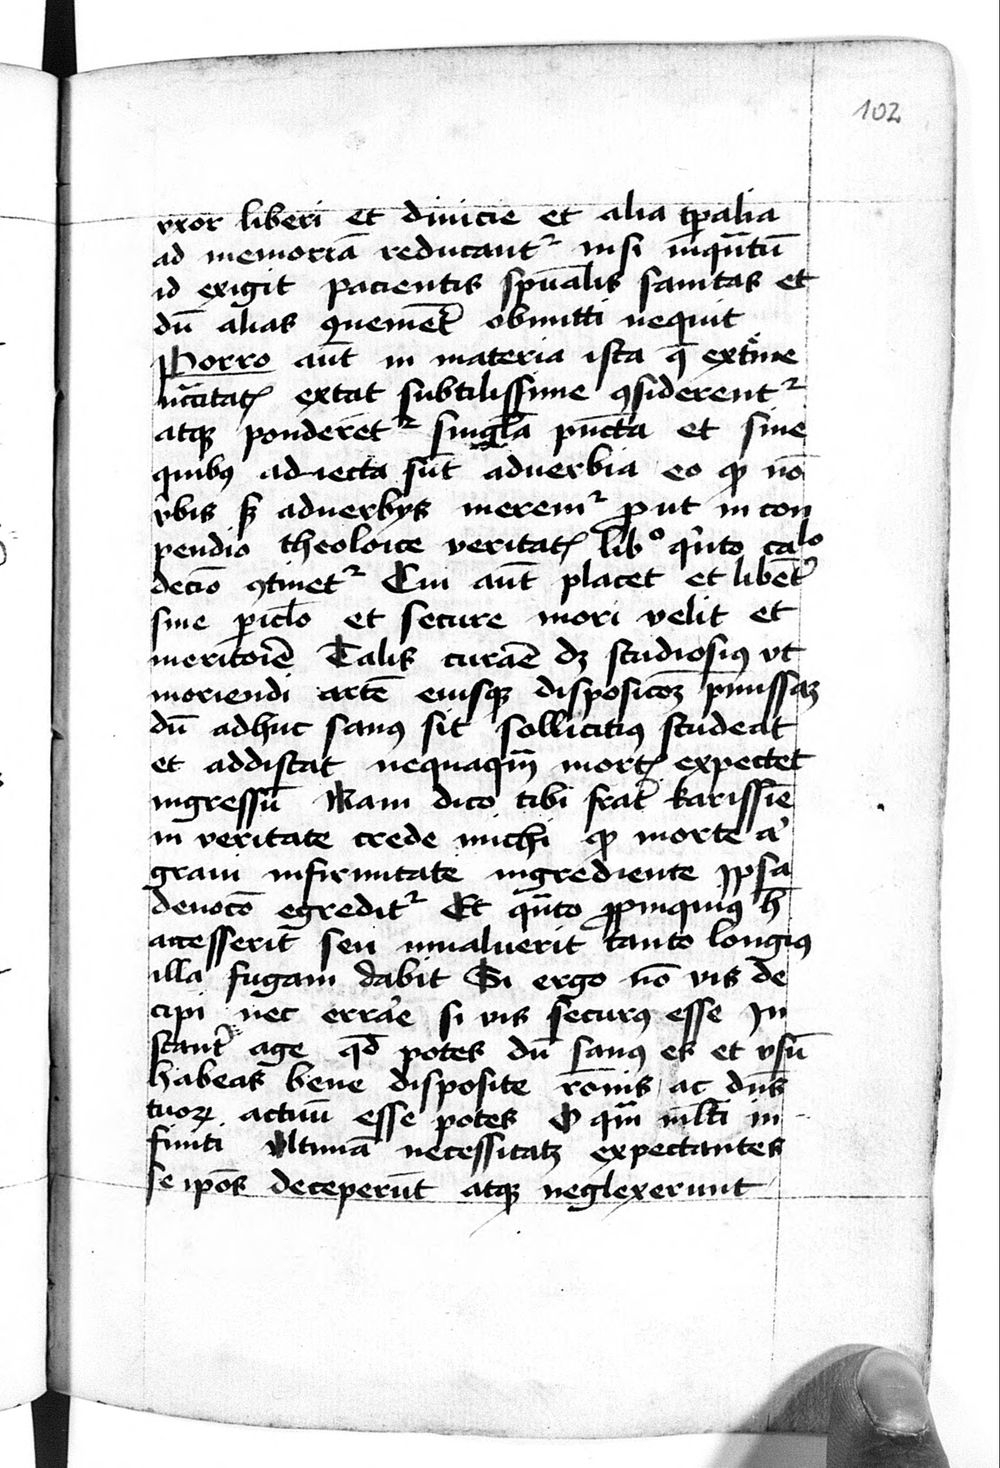 102
vxor liberi et diuicie et alia tp̄alia
ad memoriā reducant᷑ nisi inqͣntū
id exigit pacientis spūalis sanitas et
dū alias ꝯuenient᷑ obmitti nequit
Porro aūt in materia ista q̄ extͤme
nc̄citatꝭ extat subtilissime ꝯsiderent᷑
atqꝫ ponderēt᷑ singl̄a pūcta et sine
quibꝰ adiecta sūt aduerbia eo ꝙ nō
vbis sꝫ aduerbijs meremᷣ ꝓut in con
pendio theoloice veritatꝭ libº qͥnto caº
decīo ꝯtinet᷑ Cui aūt placet et libent᷑
sine ꝑicl̄o et secure mori velit et
meritorie Talis curāe dꝫ studiosiꝰ vt
moriendi artē eiusqꝫ disposicōꝫ p̄missaꝫ
dū adhuc sanꝰ sit sollicitiꝰ studeat
et addiscat nequaqͣm mortꝭ expectet
ingressū Nam dico tibi frat᷑ karissīe
in veritate crede michi ꝙ morte aͥ
graui infirmitate ingrediente Ipsa
deuocō egredit᷑ Et qͣnto ꝓpinquiꝰ h̄
accesserit seu inualuerit tanto longiꝰ
illa fugam dabit Si ergo nō vis de
cipi nec errare si vis securꝰ esse In
stant᷑ age qd̄ potes dū sanꝰ es et vsū
habeas bene disposite rōnis ac dn̄s
tuoꝝ actuū esse potes O qͣm ml̄ti in
finiti vltimā necessitatꝫ expectantes
se ip̄os deceperūt atqꝫ neglexerunt